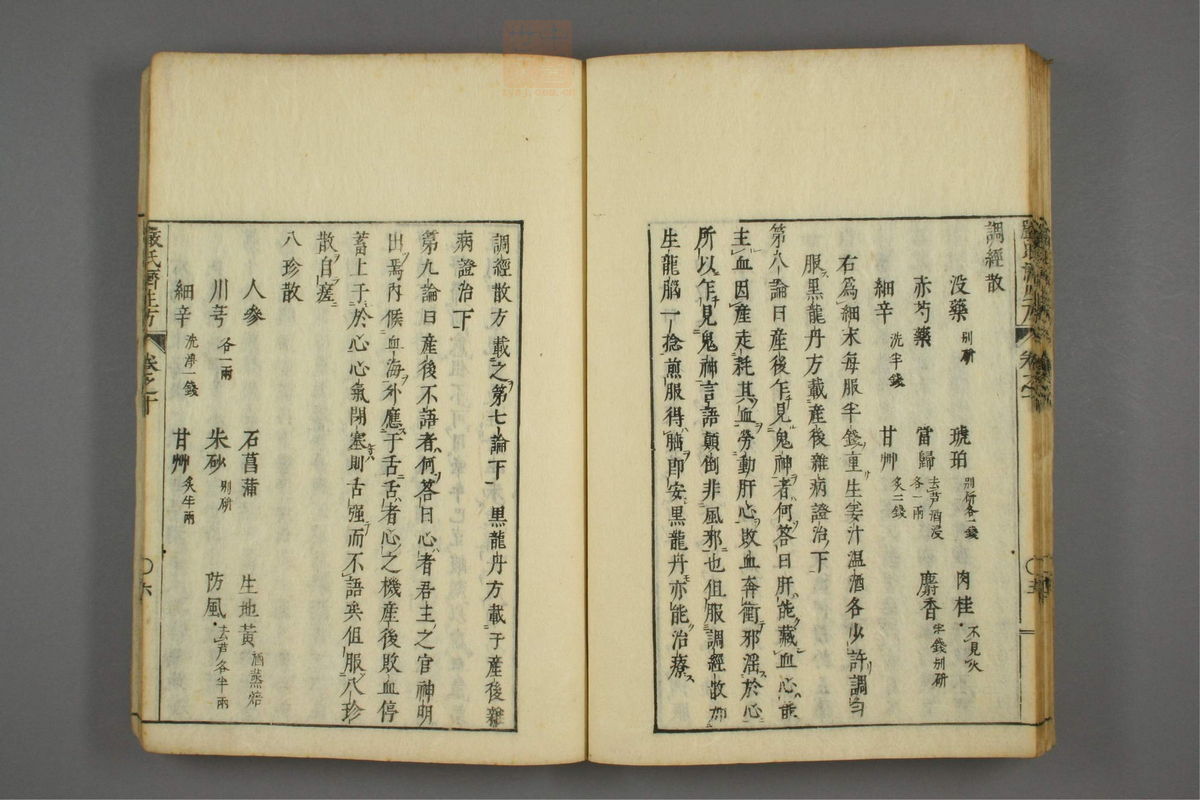 調經散
没藥 别研 琥珀 别研各一錢 肉桂 不見火
赤芍藥 當歸 去芦酒浸各一兩 麝香 半錢别研
細辛 洗半錢 甘艸 炙二錢
右為細末每服半錢重生姜汁温酒各少許調勻
服黑龍丹方載産後雜病證治下
第八論曰産後乍見鬼神者何答曰肝能藏血心能
主血因産走耗其血勞動肝心敗血奔衝邪滛於心
所以乍見鬼神言語顛倒非風邪也但服調經散加
生龍腦一捻煎服得睡即安黑龍丹亦能治療
調經散方載之第七論下 黒龍丹方載于産後雜
病證治下
第九論曰産後不語者何答曰心者君主之官神明
出焉内候血海外應于舌舌者心之機産後敗血停
蓄上于於心心氣閉塞則舌强而不語矣但服八珍
散自瘥
八珍散
人參 石菖蒲 生地黃 酒蒸焙
川芎 各一兩 朱砂 别研 防風 去芦各半兩
細辛 洗淨一錢 甘艸 炙半兩
嚴氏濟生方 卷之十 〇六